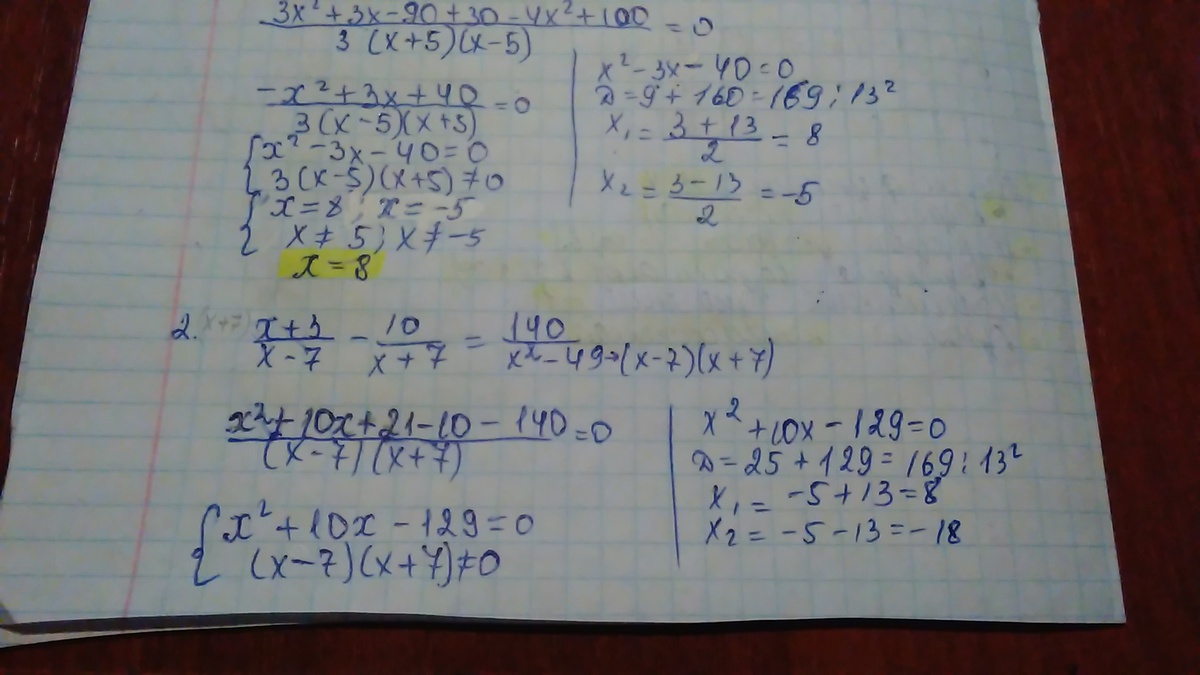 3x² + 3x - 90 + 30 - 4x² + 100 / 3 (x+5)(x-5) = 0
-x² + 3x + 40 / 3(x-5)(x+5) = 0
{ x² - 3x - 40 = 0
3(x-5)(x+5) ≠ 0
{ x = 8 ; x = -5
x ≠ 5 ; x ≠ -5
x = 8
x² - 3x - 40 = 0
D = 9 + 160 = 169 ; 13²
x₁ = 3 + 13 / 2 = 8
x₂ = 3 - 13 / 2 = -5
2. (x+7) x+3 / x-7 - 10 / x+7 = 140 / x² - 49 → (x-7)(x+7)
x² + 10x + 21 - 10 - 140 / (x-7)(x+7) = 0
{ x² + 10x - 129 = 0
(x-7)(x+7) ≠ 0
x² + 10x - 129 = 0
D = 25 + 129 = 169 ; 13²
x₁ = -5 + 13 = 8
x₂ = -5 - 13 = -18